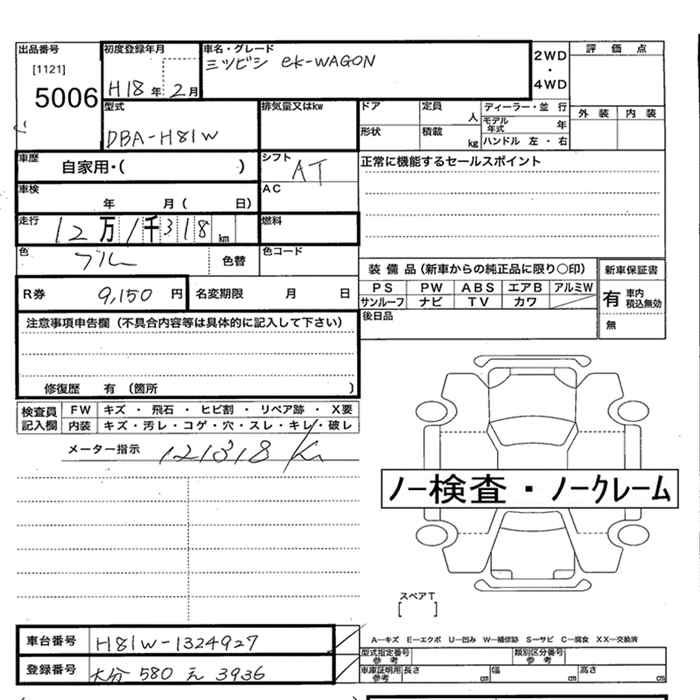 出品番号 初度登録年月 車名・グレード
[1121]
5006
H18年 2月
ミツビシ ek-WAGON
2WD
・
4WD
評 価 点
外 装 内 装
型式
DBA-H81W
排気量又はkw
ドア 定員 人
形状 積載 kg
ディーラー・並 行
モデル年式 年
ハンドル 左・右
車歴 自家用・( )
シフト AT
正常に機能するセールスポイント
車検 年 月( 日)
AC
走行 12万1千318km
燃料
色 ブルー 色替
色コード
装 備 品 (新車からの純正品に限り○印)
新車保証書
PS PW ABS エアB アルミW
サンルーフ ナビ TV カワ
有 車内 積込無効
無
R券 9,150 円
名変期限 月 日
後日品
注意事項申告欄 (不具合内容等は具体的に記入して下さい)
修復歴 有 (箇所 )
検査員記入欄
FW キズ ・ 飛石 ・ ヒビ割 ・ リペア跡 ・ X要
内装 キズ・汚レ・コゲ・穴・スレ・キレ・破レ
メーター指示 121318 K
ノー検査・ノークレーム
スペアT
[ ]
車台番号 H81W-1324927
A―キズ E―エクボ U―凹み W―補修跡 S―サビ C―腐食 XX―交換済
型式指定番号 参考
類別区分番号 参考
登録番号 大分 580 え 3936
車庫証明用 参考 長さ cm 幅 cm 高さ cm